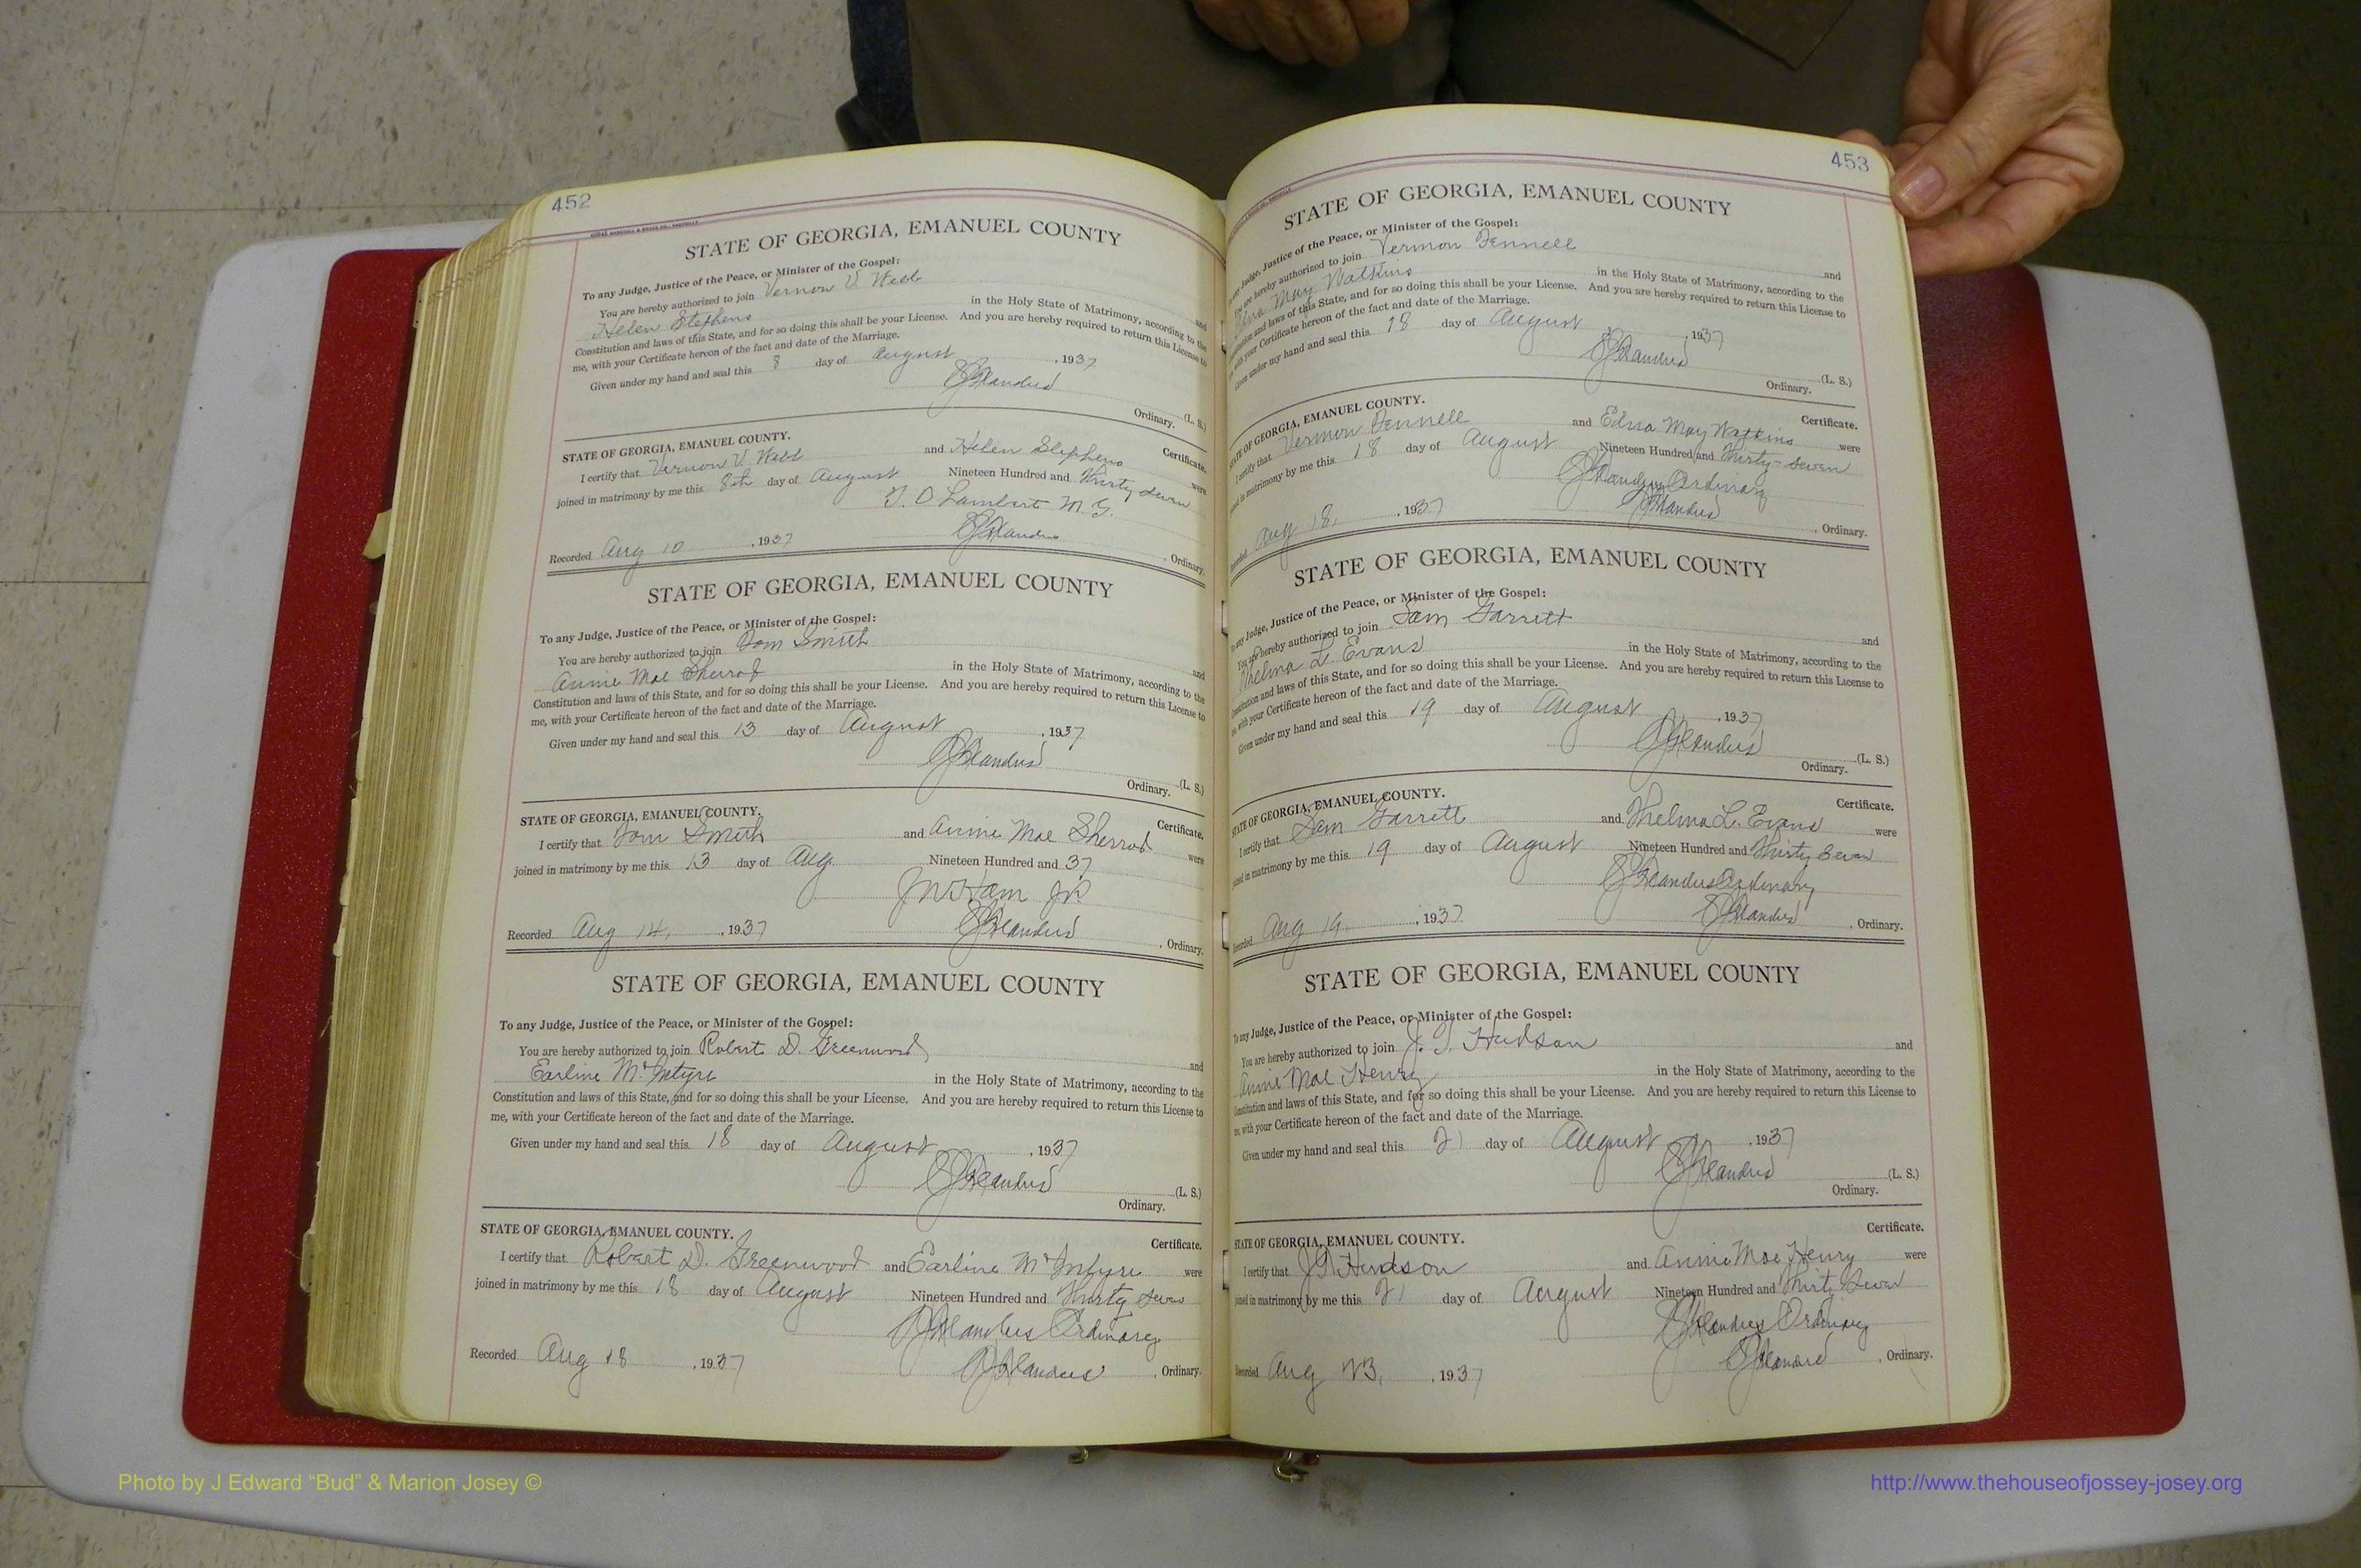 452
STATE OF GEORGIA, EMANUEL COUNTY
To any Judge, Justice of the Peace, or Minister of the Gospel:
You are hereby authorized to join Vernon V. Webb and
Helen Stephens in the Holy State of Matrimony, according to the
Constitution and laws of this State, and for so doing this shall be your License. And you are hereby required to return this License to
me, with your Certificate hereon of the fact and date of the Marriage.
Given under my hand and seal this 8 day of August, 1937
(L. S.)
Ordinary.
STATE OF GEORGIA, EMANUEL COUNTY. Certificate.
I certify that Vernon V. Webb and Helen Stephens were
joined in matrimony by me this 8th day of August Nineteen Hundred and Thirty Seven
Lambert M. G.
Recorded Aug 10, 1937, Ordinary.
STATE OF GEORGIA, EMANUEL COUNTY
To any Judge, Justice of the Peace, or Minister of the Gospel:
You are hereby authorized to join Tom Smith and
Annie Mae Sherrod in the Holy State of Matrimony, according to the
Constitution and laws of this State, and for so doing this shall be your License. And you are hereby required to return this License to
me, with your Certificate hereon of the fact and date of the Marriage.
Given under my hand and seal this 13 day of August, 1937
(L. S.)
Ordinary.
STATE OF GEORGIA, EMANUEL COUNTY. Certificate.
I certify that Tom Smith and Annie Mae Sherrod were
joined in matrimony by me this 13 day of Aug. Nineteen Hundred and 37
Recorded Aug 14, 1937, Ordinary.
STATE OF GEORGIA, EMANUEL COUNTY
To any Judge, Justice of the Peace, or Minister of the Gospel:
You are hereby authorized to join Robert D. Greenwood and
Earline McIntyre in the Holy State of Matrimony, according to the
Constitution and laws of this State, and for so doing this shall be your License. And you are hereby required to return this License to
me, with your Certificate hereon of the fact and date of the Marriage.
Given under my hand and seal this 18 day of August, 1937
(L. S.)
Ordinary.
STATE OF GEORGIA, EMANUEL COUNTY. Certificate.
I certify that Robert D. Greenwood and Earline McIntyre were
joined in matrimony by me this 18 day of August Nineteen Hundred and Thirty Seven
Ordinary
Recorded Aug 18, 1937, Ordinary.
453
STATE OF GEORGIA, EMANUEL COUNTY
any Judge, Justice of the Peace, or Minister of the Gospel:
You are hereby authorized to join Vermon Fennell and
Edna May Watkins in the Holy State of Matrimony, according to the
Constitution and laws of this State, and for so doing this shall be your License. And you are hereby required to return this License to
me, with your Certificate hereon of the fact and date of the Marriage.
Given under my hand and seal this 18 day of August, 1937
(L. S.)
Ordinary.
STATE OF GEORGIA, EMANUEL COUNTY. Certificate.
I certify that Vermon Fennell and Edna May Watkins were
joined in matrimony by me this 18 day of August Nineteen Hundred and Thirty-Seven
Ordinary
Recorded Aug 18, 1937, Ordinary.
STATE OF GEORGIA, EMANUEL COUNTY
To any Judge, Justice of the Peace, or Minister of the Gospel:
You are hereby authorized to join Sam Garrett and
Thelma L. Evans in the Holy State of Matrimony, according to the
Constitution and laws of this State, and for so doing this shall be your License. And you are hereby required to return this License to
me, with your Certificate hereon of the fact and date of the Marriage.
Given under my hand and seal this 19 day of August, 1937
(L. S.)
Ordinary.
STATE OF GEORGIA, EMANUEL COUNTY. Certificate.
I certify that Sam Garrett and Thelma L. Evans were
joined in matrimony by me this 19 day of August Nineteen Hundred and Thirty Seven
Ordinary
Recorded Aug 19, 1937, Ordinary.
STATE OF GEORGIA, EMANUEL COUNTY
To any Judge, Justice of the Peace, or Minister of the Gospel:
You are hereby authorized to join J. T. Hudson and
Annie Mae Henry in the Holy State of Matrimony, according to the
Constitution and laws of this State, and for so doing this shall be your License. And you are hereby required to return this License to
me, with your Certificate hereon of the fact and date of the Marriage.
Given under my hand and seal this 21 day of August, 1937
(L. S.)
Ordinary.
STATE OF GEORGIA, EMANUEL COUNTY. Certificate.
I certify that J T Hudson and Annie Mae Henry were
joined in matrimony by me this 21 day of August Nineteen Hundred and Thirty Seven
Ordinary
Recorded Aug 23, 1937, Ordinary.
Photo by J Edward “Bud” & Marion Josey ©
http://www.thehouseofjossey-josey.org